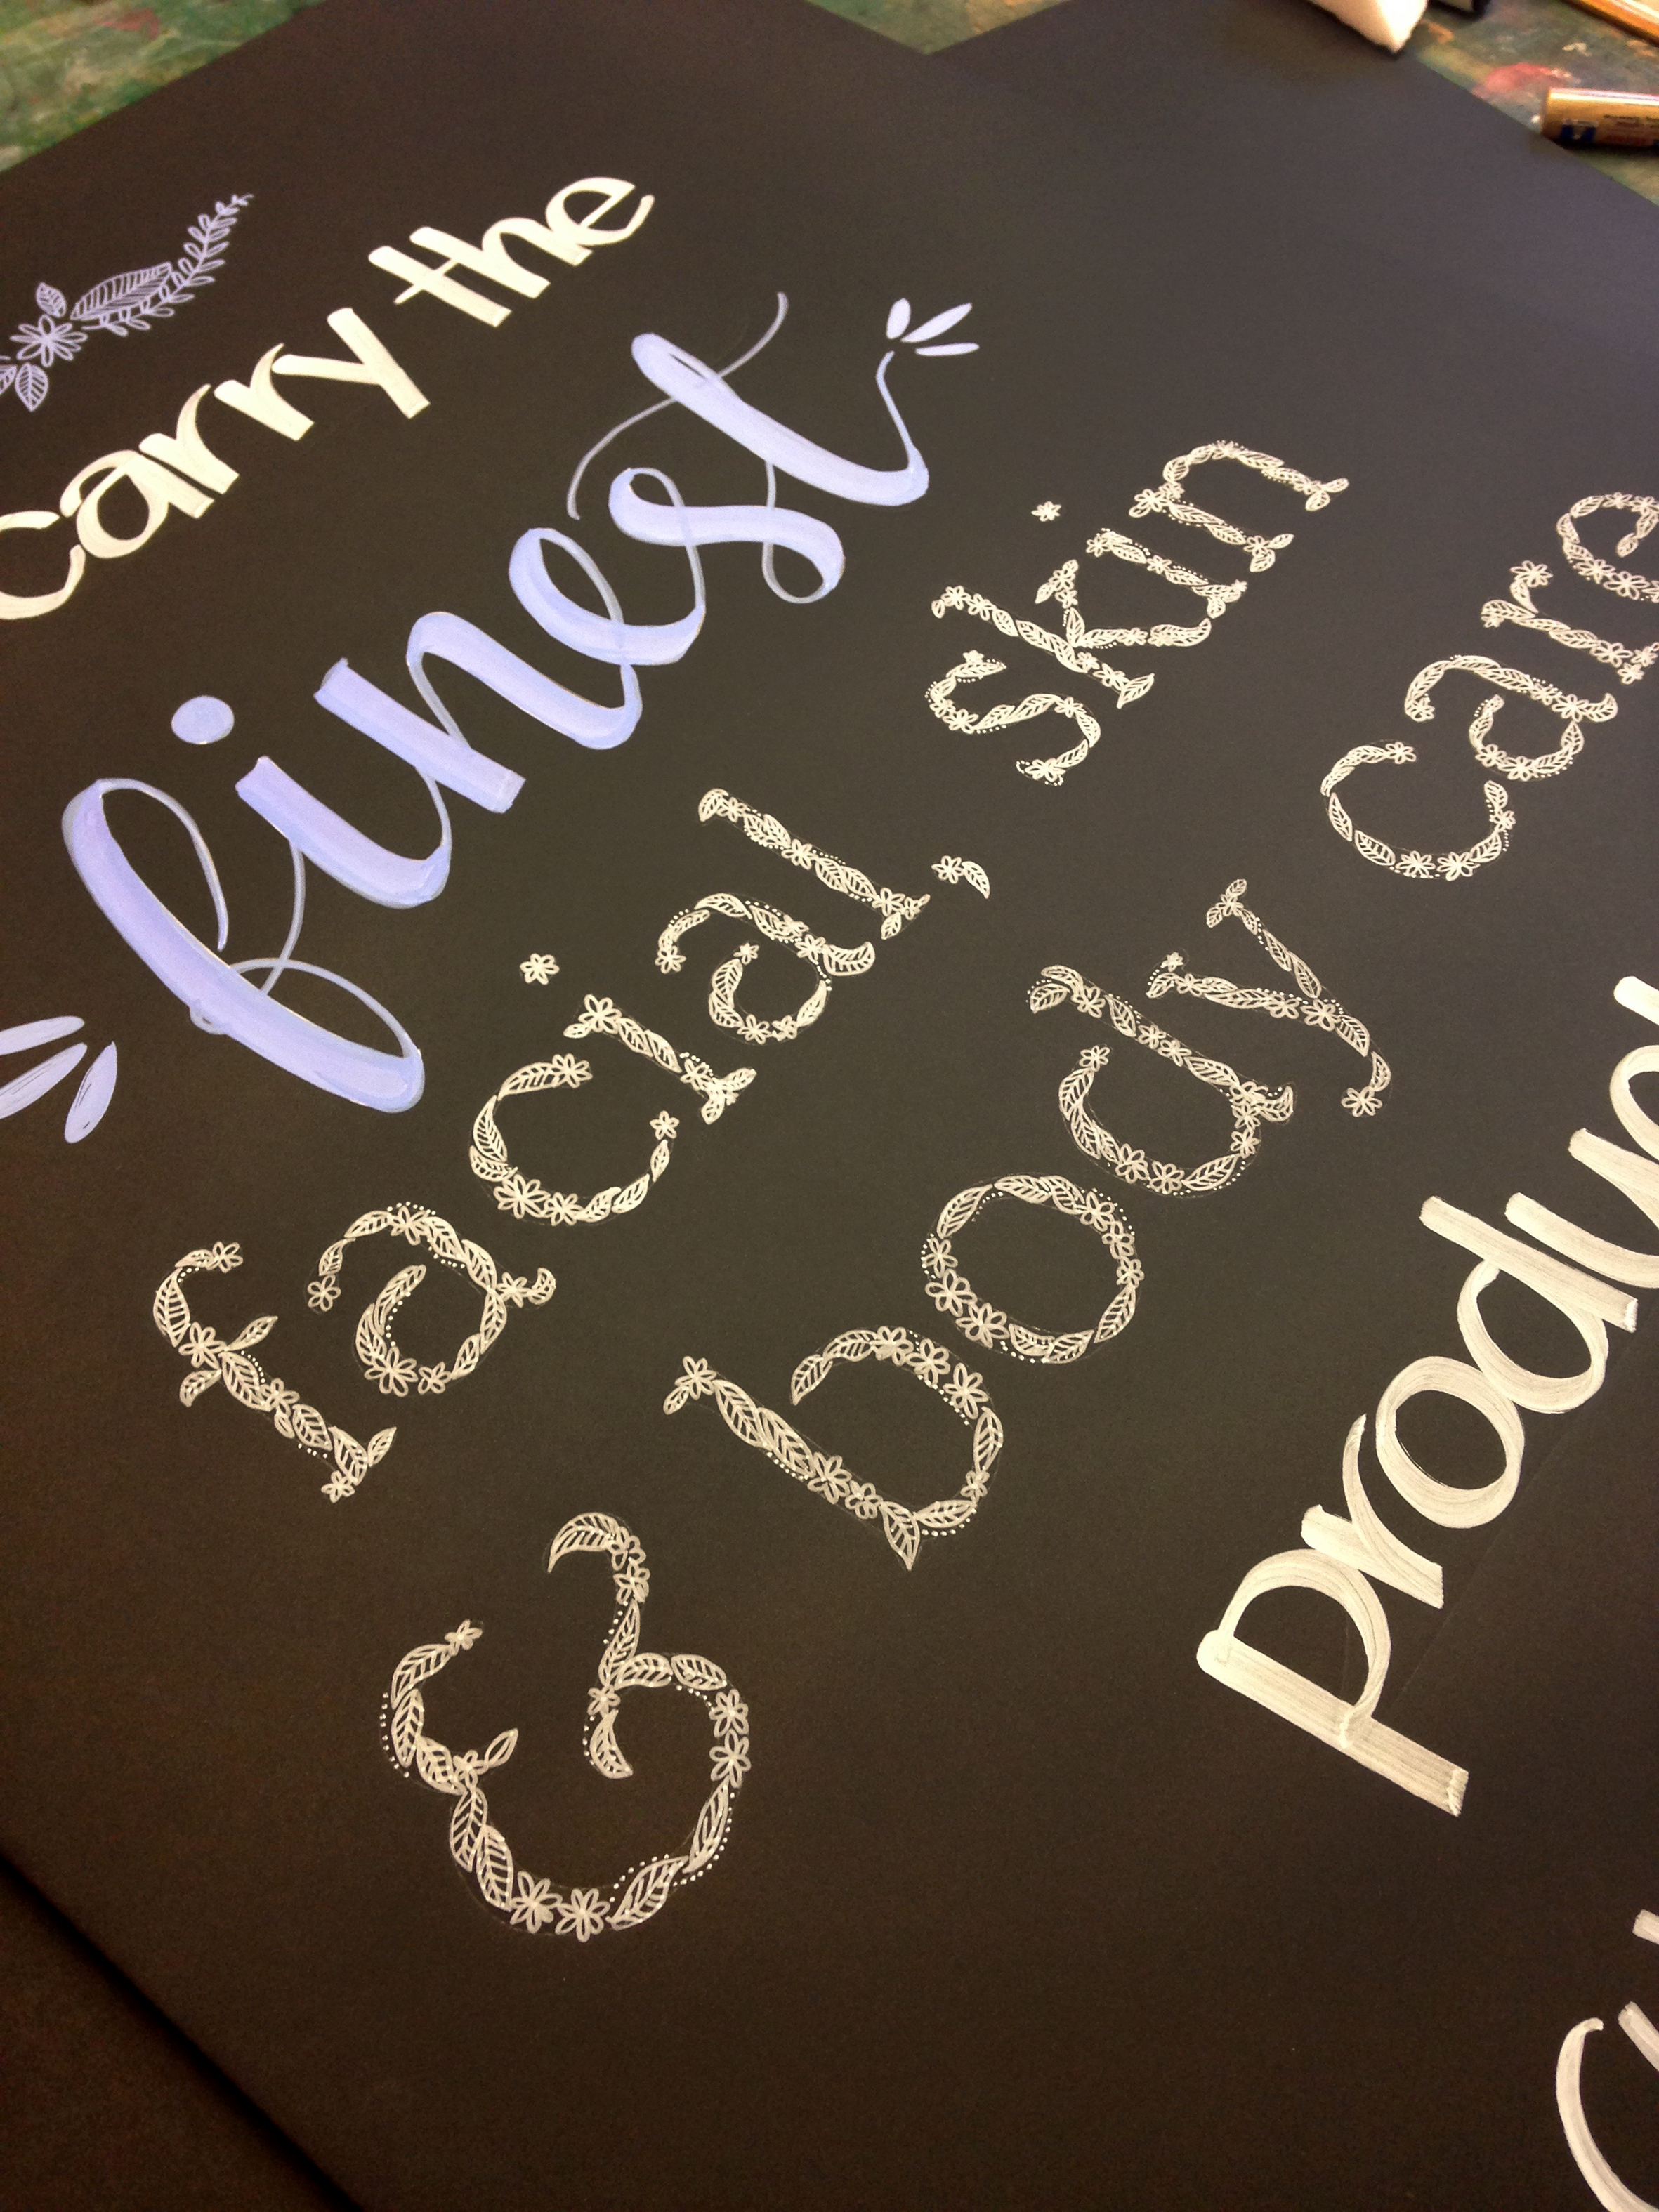 carry the
finest
facial, skin
& body care